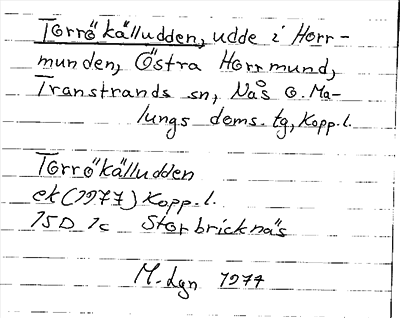 Torrökälludden, udde i Horr-
munden, Östra Horrmund,
Transtrands sn, Nås o. Ma-
lungs doms. tg, Kopp. l.
Torrökälludden
ek (1977) Kopp. l.
15D 1c Storbricknäs
M-dgn 1977